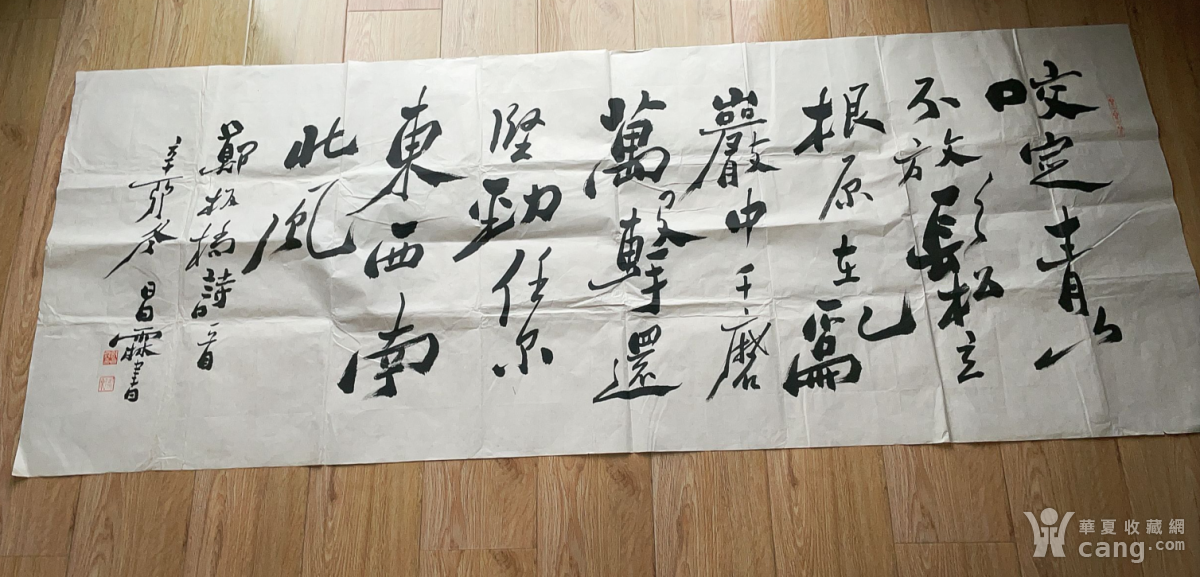 咬定青山
不放鬆立
根原在亂
巖中千磨
萬擊還
堅勁任尔
東西南
北風
鄭板橋詩一首
辛卯冬昌霖書
華夏收藏網
cang.com